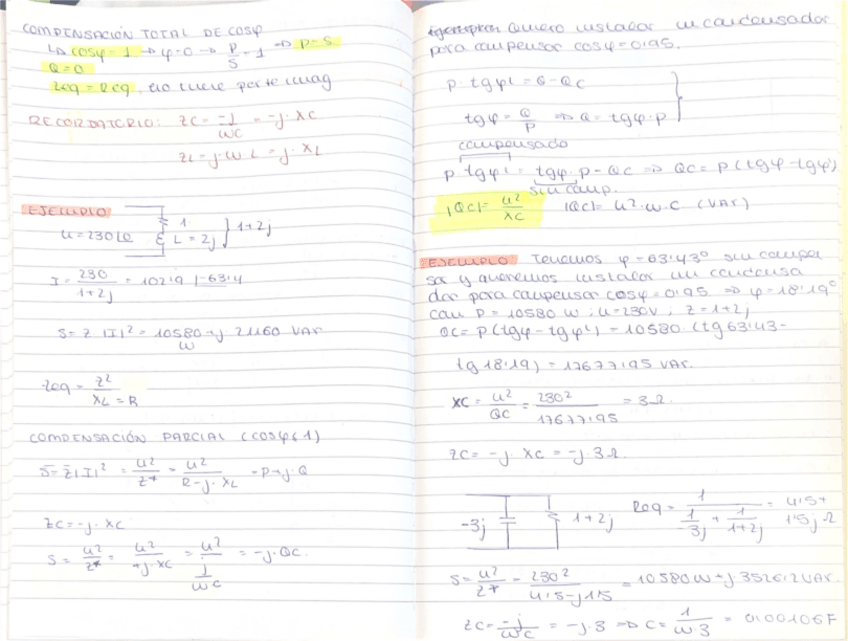 COMPENSACIÓN TOTAL DE COSφ
↳ cosφ = 1 → φ=0 → P/S = 1 ⇒ P=S
Q=0
Zeq = Req, no tiene parte imag
RECORDATORIO: ZC = -j/WC = -j·XC
ZL = j·W·L = j·XL
EJEMPLO
U=230∟0
1
L = 2j
1+2j
I = 230/1+2j = 102'9 ∟-63'4
S = Z·|I|² = 10580 + j·21160 VAR
W
Zeq = Z²/XL = R
COMPENSACIÓN PARCIAL (cosφ<1)
S̄ = Z̄|I|² = U²/Z* = U²/R-j·XL = P+j·Q
ZC = -j·XC
S = U²/Z* = U²/+j·XC = U²/j/WC = -j·QC.
Quiero instalar un condensador
para compensar cosφ=0'95.
P·tgφ' = Q-QC
tgφ = Q/P ⇒ Q = tgφ·P
compensado
P·tgφ' = tgφ·P - QC ⇒ QC = P(tgφ-tgφ')
sin comp.
|QC| = U²/XC |QC| = U²·W·C (VAR)
EJEMPLO Tenemos φ=63'43° sin compen
sar y queremos instalar un condensa
dor para compensar cosφ=0'95 ⇒ φ=18'19°
con P = 10580 W; U=230V; Z=1+2j
QC = P(tgφ-tgφ') = 10580·(tg63'43-
tg18'19) = 17677'95 VAR.
XC = U²/QC = 230²/17677'95 = 3Ω.
ZC = -j·XC = -j·3Ω.
-3j
1+2j
Zeq = 1/(1/-3j + 1/1+2j) = 4'5+
1'5j Ω
S = U²/Z* = 230²/4'5-j1'5 = 10580W+j·3526'2VAR.
ZC = -j/WC = -j·3 ⇒ C = 1/W·3 = 0'00106F